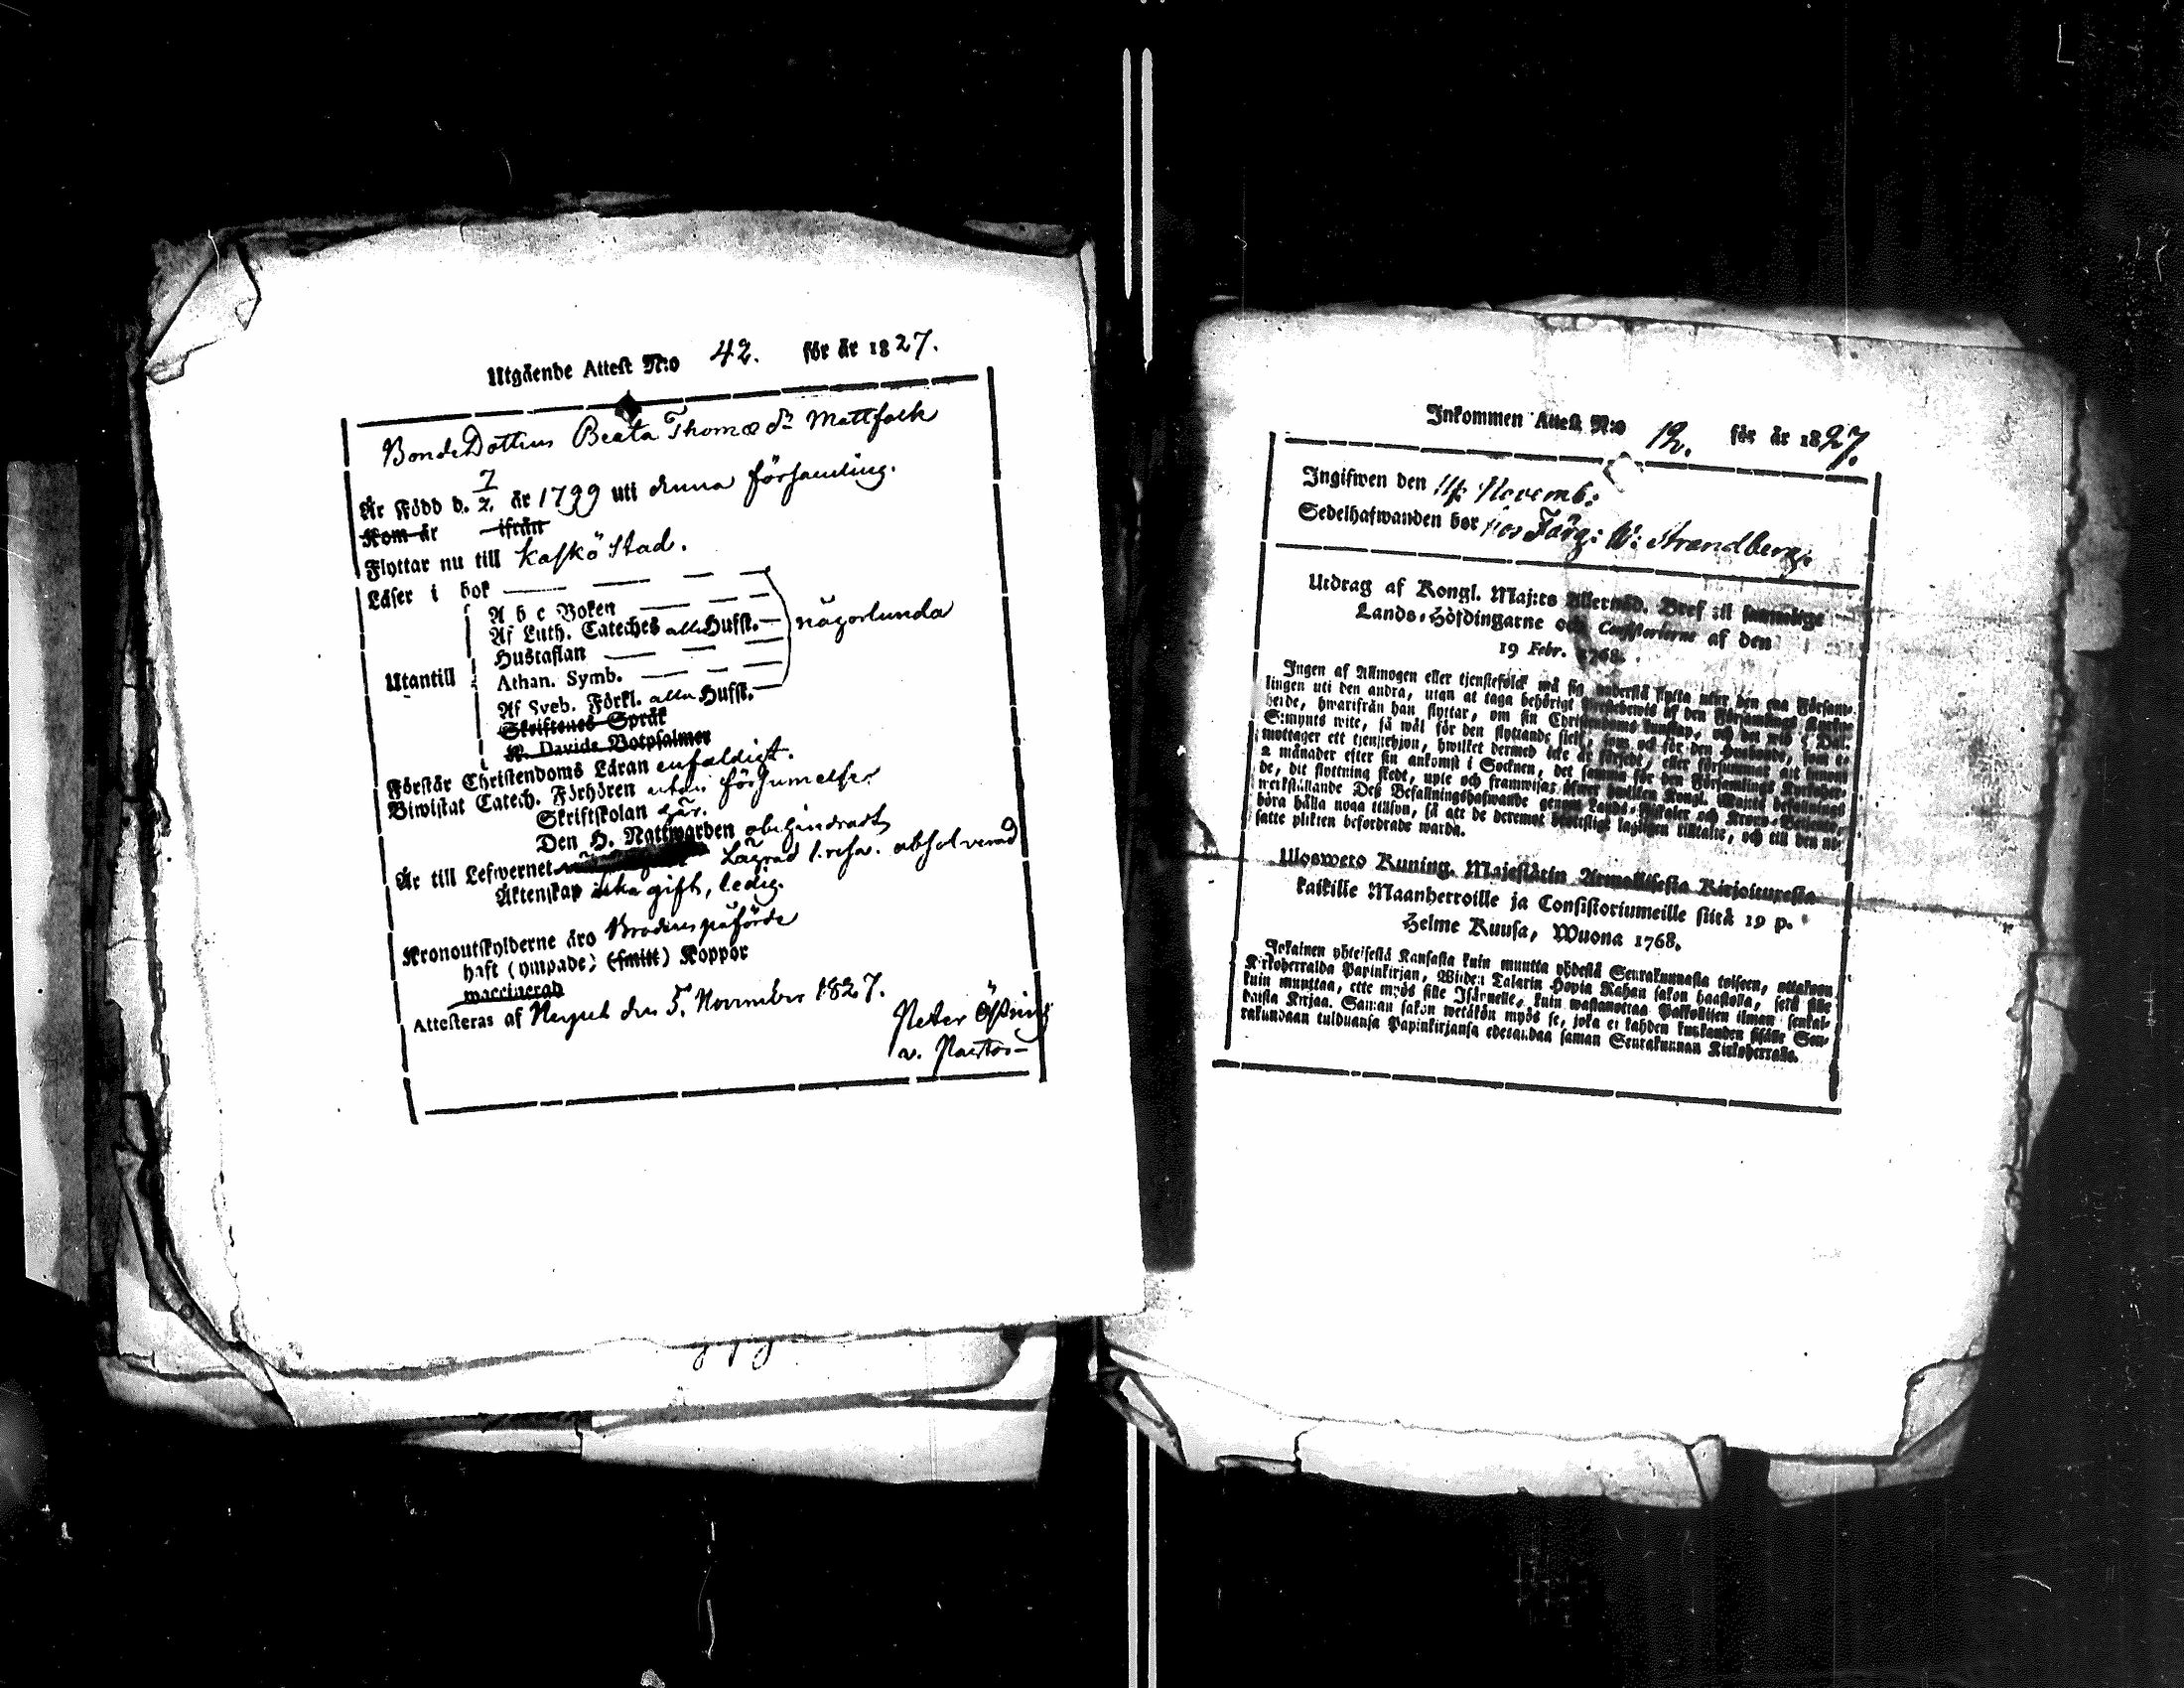 Utgående Attest N:o 42. för år 1827.
Bonde Dottren Beata Thomæ dr Mattfolk
Är Född d. 7/2. år 1799 uti denna församling.
Kom år ifrån
Flyttar nu till Kaskö Stad.
Läser i bok
Utantill
A b c Boken
Af Luth. Cateches alla Hufst.
någorlunda
Hustaflan
Athan. Symb.
Af Sveb. Förkl. alla Hufst.
Skriftenes Språk
K. Davids Botpsalmer
Förstår Christendoms Läran enfaldigt.
Biwistat Catech. Förhören utan försummelse
Skriftskolan här.
Den H. Nattwarden obehindradt
Är till Lefwernet Lägrad 1. resa. absolverad
Äktenskap icke gift, ledig.
Kronoutskylderne äro Brodren påförde
haft (ympade) (smitt) Koppor
waccinerad
Attesteras af Nerpes den 5. November 1827.
Peter
v. Pastor
Inkommen Attest N:o 12. för år 1827.
Ingifwen den 14 Novemb:
Sedelhafwanden bor hos Färg: W: Strandberg.
Utdrag af Kongl. Maj:ts Allernåd. Bref til samtelige
Lands-Höfdingarne och Consistorierne af den
19 Febr. 1768.
Ingen af Allmogen eller tjenstefolck må sig understå flytta utur den ena Försam-
lingen uti den andra, utan at taga behörigt af den Församlings Kyrko-
herde, hwarifrån han flyttar, om sin Christendoms kunskap, och det wid 5 Dal.
S:mynts wite, så wäl för den flyttande sielf, som ock för den Husbonde, som e-
mottager ett tjenstehjon, hwilket dermed icke är försedt, eller försummat att innom
2 månader efter sin ankomst i Socknen, det samma för den Församlings Kyrkoher-
de, dit flyttning skedt, upte och framwisa; öfwer hwilken Kongl. Majits befallnings
werkställande Deß Befallningshafwande genom Lands-Fiskaler och Krono-Betjente,
böra hålla noga tillsyn, så att de deremot brottslige lagligen tilltalte, och till den ut-
satte plikten befordrade warda.
Uloswero Kuning. Majestätin Armollisesta Kirjoituxesta
kaikille Maanherroille ja Consistoriumeille siitä 19 p.
Helme Kuusa, Wuona 1768.
Jokainen yhteisestä Kansasta kuin muutta yhdestä Seurakunnasta toiseen, ottakoon
Kirkoherralda Papinkirjan, Wiiden Talarin Hopia Rahan sakon haastolla, sekä sille
kuin muuttaa, ette myös sille Isännelle, kuin wastanottaa Palkollisen ilman senkal-
daista Kirjaa. Saman sakon wetäkön myös se, joka ei kahden kuukauden sisälle Seu-
rakundaan tulduansa Papinkirjansa edesandaa saman Seurakunnan Kirkoherralle.